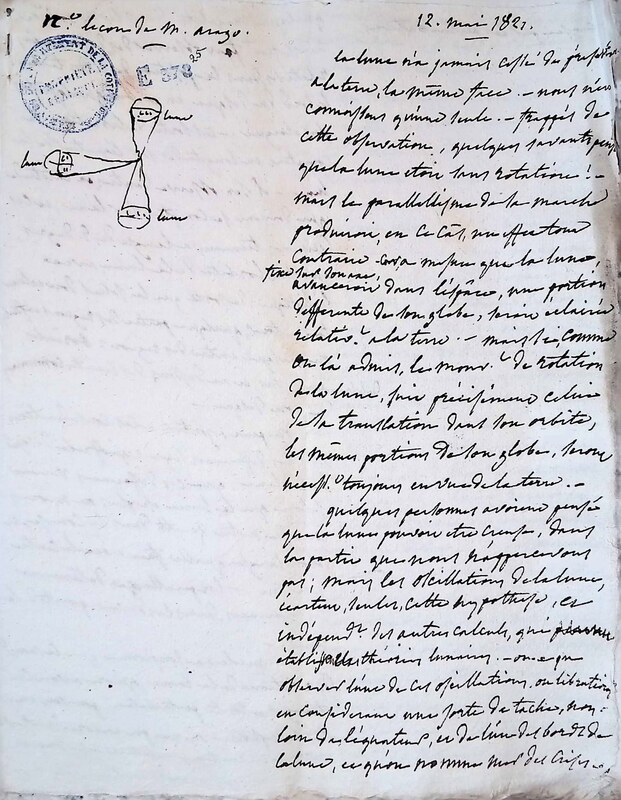 leçon de m. arago.
12. mai 1821.
DEPARTEMENT DE LA COTE-D'OR
PROPRIÉTÉ
E 378
25
lune
lune
lune
la lune n'a jamais cessé de présenter
a la terre, la même face. - nous n'en
connoissons qu'une seule. - frappés de
cette observation, quelques savants
que la lune etoit sans rotation! -
mais le parallélisme de la marche
produiroit, en ce cas, un effet tout
contraire a mesure que la lune,
fixe sur son axe,
avanceroit dans l'espâce, une portion
differente de son globe, seroit éclairée
relativ.t a la terre. - mais si, comme
on l'a admis, le mouv.t de rotation
de la lune, suit précisément celui
de la translation dans son orbite,
les mêmes portions de son globe, seront
nécess.t toujours en vue de la terre. -
quelques personnes avoient pensé
que la lune pouvoit etre creuse, dans
la partie que nous n'appercevons
pas; mais les oscillations de la lune,
écartent, seules, cette hypothese, et
independ.t des autres calculs, qui
les théories lunaires. - on a pu
observer l'une de ces oscillations, ou libration,
en considerant une sorte de tache, non-
loin de l'équateur, et de l'un des bords de
la lune, et qu'on nomme mer des Crises